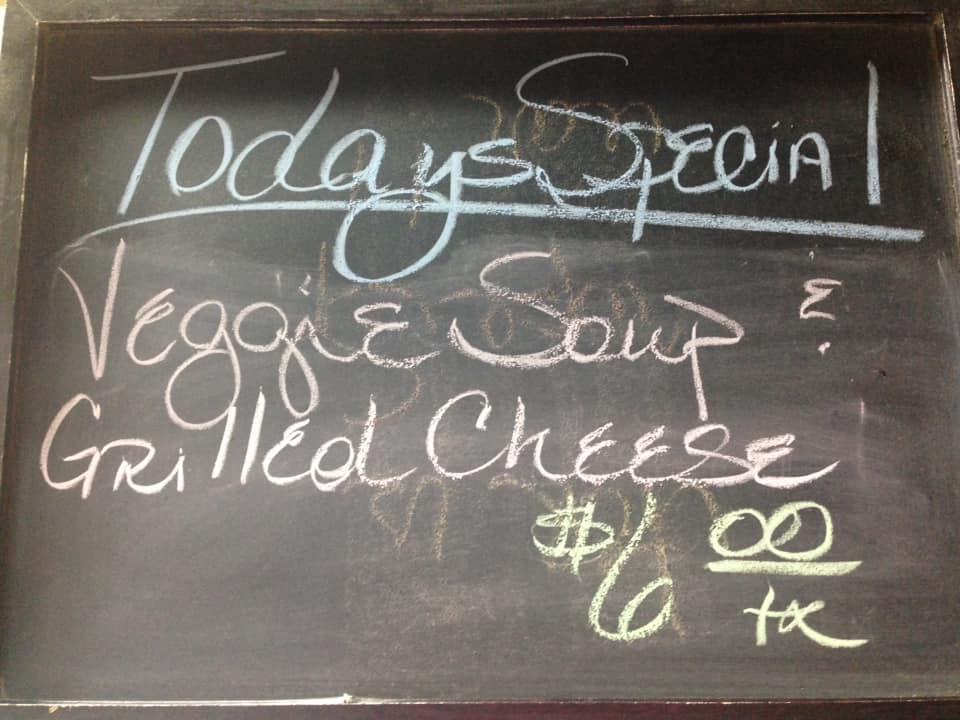 Todays Special
Veggie Soup &
Grilled Cheese
$6 00
tx